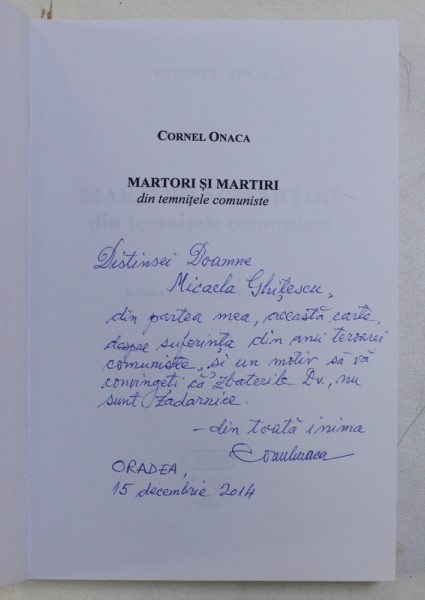 CORNEL ONACA
MARTORI ȘI MARTIRI
din temnițele comuniste
Distinsei Doamne
Micaela Ghițescu,
din partea mea, această carte
despre suferința din anii teroarei
comuniste, și un motiv să vă
convingeți că, zbaterile Dv., nu
sunt zadarnice.
- din toată inima
ORADEA,
15 decembrie 2014